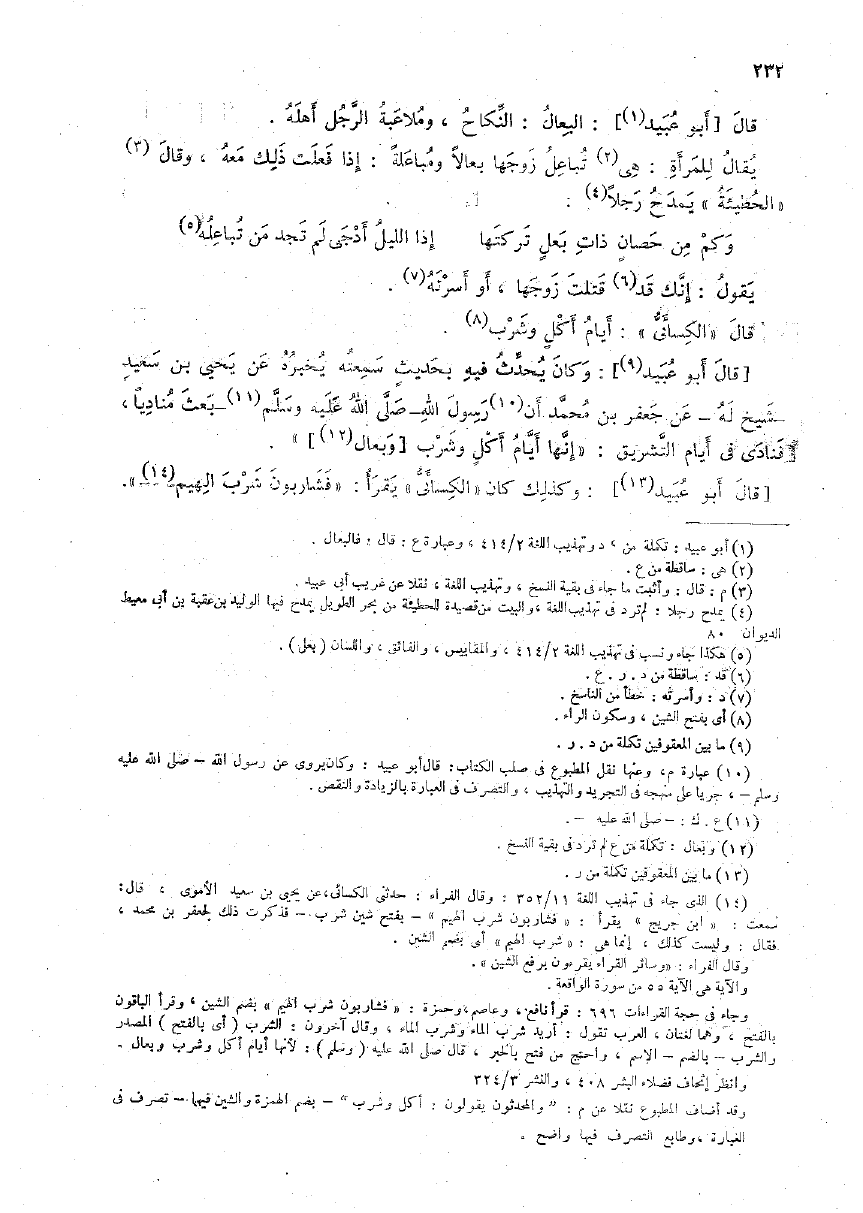 ٢٣٢
قالَ [أَبو عُبَيد(١)] : البِعالُ : النِّكاحُ ، ومُلاعَبَةُ الرَّجُل أَهلَهُ .
يُقالُ لِلمَرأَةِ : هِى(٢) تُباعِلُ زَوجَها بعالاً ومُباعَلةً : إذا فَعلَت ذَلِك مَعهُ ، وقالَ (٣)
«الحُطَيئَةُ » يَمدَحُ رَجلاً(٤) :
وَكمْ مِن حَصانٍ ذاتِ بَعلٍ تَركتَها إذا الليلُ أَدْجَى لَم تَجد مَن تُباعِلُهْ(٥)
يَقولُ : إنَّك قَد(٦) قَتلتَ زَوجَها ، أَو أَسرْتَهُ(٧) .
قالَ «الكِسائىُّ » : أَيامُ أَكْلٍ وشَرْب(٨) .
[قالَ أَبو عُبَيد(٩)] : وَكانَ يُحدِّثُ فيهِ بحَديثٍ سَمِعتُه يُخبرُهُ عَن يَحيَى بن سَعيدٍ
ـ شَيخ لَهُ ـ عَن جَعفر بن مُحمَّد أَن(١٠) رَسولَ اللهِ ـ صَلَّى اللهُ عَلَيه وسَلَّم(١١) ـ بَعثَ مُنادِياً ،
فَنادَى فى أَيام التَّشريق : «إنَّها أَيَّامُ أَكْلٍ وشَرْب [وَبعال(١٢)] » .
[قالَ أَبو عُبَيد(١٣)] : وكذلِك كان «الكِسائىُّ» يَقرَأُ : «فَشاربونَ شَرْبَ الهِيم(١٤)».
(١) أبو عبيد : تكملة من د وتهذيب اللغة ٤١٤/٢ ، وعبارة ع : قال : فالبعال .
(٢) هى : ساقطة من ع .
(٣) م : قال : وأثبت ما جاء فى بقية النسخ ، وتهذيب اللغة ، نقلا عن غريب أبى عبيد .
(٤) يمدح رجلا : لم ترد فى تهذيب اللغة ، والبيت من قصيدة للحطيئة من بحر الطويل يمدح فيها الوليد بن عقبة بن أبى معيط
الديوان ٨٠
(٥) هكذا جاء ونسب فى تهذيب اللغة ٤١٤/٢ ، والمقاييس ، والفائق ، واللسان (بعل) .
(٦) قد : ساقطة من د . ر . ع .
(٧) د : وأسرته : خطأ من الناسخ .
(٨) أى بفتح الشين ، وسكون الراء .
(٩) ما بين المعقوفين تكملة من د . ر .
(١٠) عبارة م، وعنها نقل المطبوع فى صلب الكتاب : قال أبو عبيد : وكان يروى عن رسول الله – صلى الله عليه
وسلم – ، جريا على منهجه فى التجريد والتهذيب ، والتصرف فى العبارة بالزيادة والنقص .
(١١) ع . ك : – صلى الله عليه –.
(١٢) وبعال : تكملة من ع لم ترد فى بقية النسخ .
(١٣) ما بين المعقوفين تكملة من ر .
(١٤) الذى جاء فى تهذيب اللغة ٣٥٢/١١ : وقال الفراء : حدثنى الكسائى، عن يحيى بن سعيد الأموى ، قال:
سمعت : « ابن جريج » يقرأ : « فشاربون شرب الهيم » – بفتح شين شرب – فذكرت ذلك لجعفر بن محمد ،
فقال : وليست كذلك ، إنما هى : « شرب الهيم » أى بضم الشين .
وقال الفراء : «وسائر القراء يقرءون برفع الشين » .
والآية هى الآية ٥٥ من سورة الواقعة .
وجاء فى حجة القراءات ٦٩٦ : قرأ نافع ، وعاصم، وحمزة : « فشاربون شرب الهيم » بضم الشين ، وقرأ الباقون
بالفتح ، وهما لغتان ، العرب تقول : أريد شرب الماء وشرب الماء ، وقال آخرون : الشرب ( أى بالفتح ) المصدر
والشرب – بالضم – الإسم ، واحتج من فتح بالخبر ، قال صلى الله عليه (وسلم) : لأنها أيام أكل وشرب وبعال .
وانظر إتحاف فضلاء البشر ٤٠٨ ، والنشر ٣٢٤/٣
وقد أضاف المطبوع نقلا عن م : “ والمحدثون يقولون : أكل وشرب “ – بضم الهمزة والشين فيها – تصرف فى
العبارة ، وطابع التصرف فيها واضح .